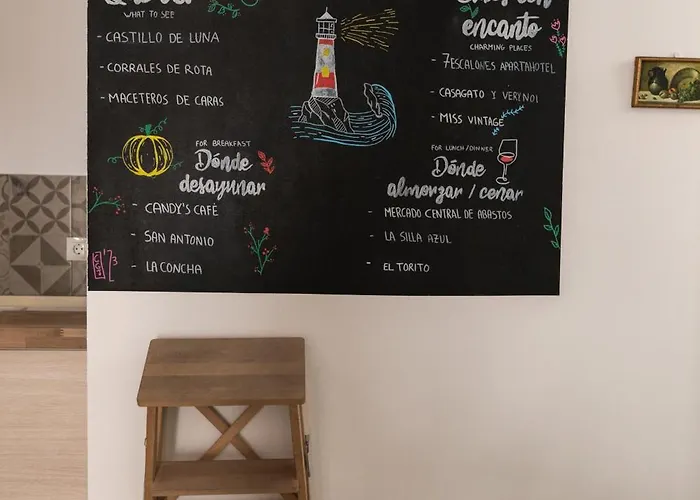 WHAT TO SEE
- CASTILLO DE LUNA
- CORRALES DE ROTA
- MACETEROS DE CARAS
FOR BREAKFAST
Dónde
desayunar
- CANDY'S CAFÉ
- SAN ANTONIO
- LA CONCHA
encanto
CHARMING PLACES
- 7ESCALONES APARTAHOTEL
- CASAGATO Y VERYNOI
- MISS VINTAGE
FOR LUNCH/DINNER
Dónde
almorzar / cenar
- MERCADO CENTRAL DE ABASTOS
- LA SILLA AZUL
- EL TORITO